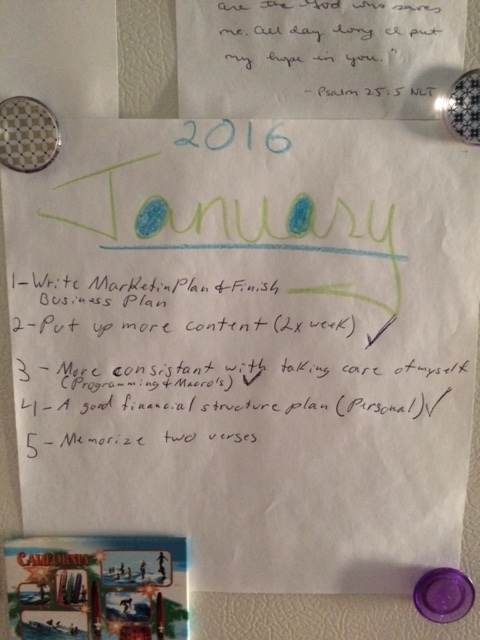 are the God who saves
me. All day long I put
my hope in you."
- Psalm 25:5 NLT
2016
January
1-Write MarketinPlan & Finish
Business Plan
2-Put up more content (2x week)
3 - More consistant with taking care of myself
(Programming & Macro's)
4 - A good financial structure plan (Personal)
5 - Memorize two verses
CALIFORNIA